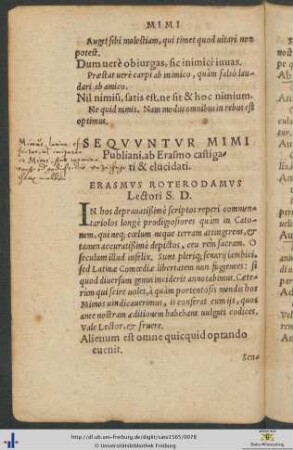 MIMI
Auget sibi molestiam, qui timet quod uitari non
potest.
Dum verè obiurgas, sic inimicè iuuas.
Præstat verè carpi ab inimico, quàm falsò lau-
dari ab amico.
Nil nimis, satis est, ne sit & hoc nimium.
Ne quid nimis. Nam modus omnibus in rebus est
optimus.
SEQVVNTVR MIMI
Publiani, ab Erasmo castiga-
ti & elucidati.
ERASMVS ROTERODAMVS
Lectori S. D.
IN hos deprauatissimè scriptos reperi commen-
tariolos longè prodigiosiores quàm in Cato-
nem, qui neq; cœlum neque terram attingerent, &
tamen accuratissimè depictos, ceu rem sacram. O
seculum illud infelix. Sunt pleriq; senarij iambici,
sed Latinæ Comœdiæ libertatem non fugientes: si
quod diuersum genus inciderit annotabimus. Cæte-
rùm qui scire volet, à quàm portentosis mendis hos
Mimos vindicauerimus, is conferat cum ijs, quos
ante nostram æditionem habebant uulgati codices,
Vale Lector, & fruere.
Alienum est omne quicquid optando
euenit.
Sen-
http://dl.ub.uni-freiburg.de/diglit/cato1565/0078
© Universitätsbibliothek Freiburg
Baden-Württemberg